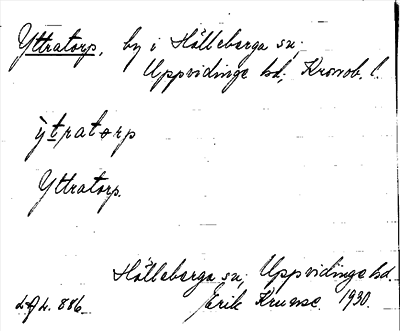 Yttratorp, by i Hälleberga sn;
Uppvidinge hd; Kronob. l.
ỳtratorp
Yttratorp.
Hälleberga sn; Uppvidinge hd.
Erik Kruuse. 1930.
886